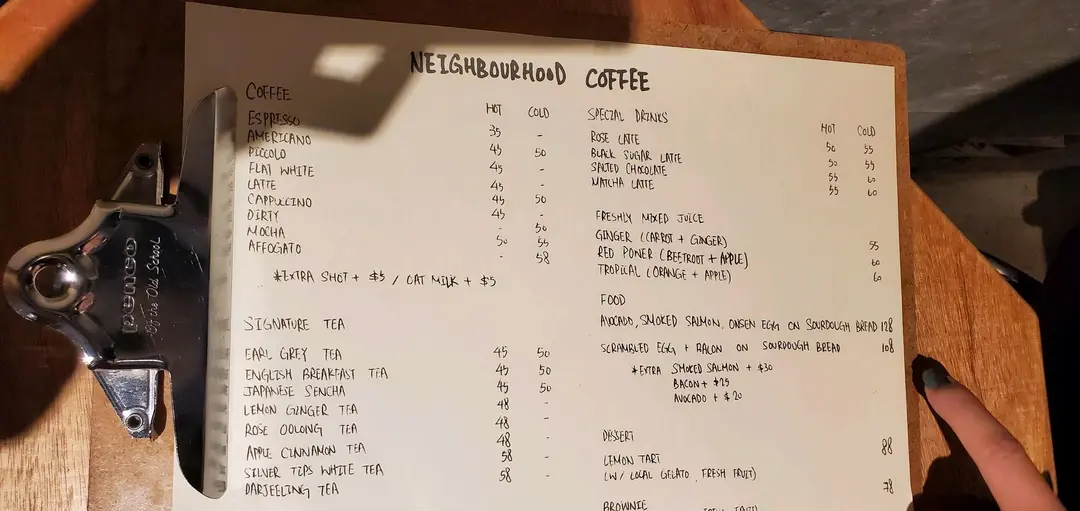 NEIGHBOURHOOD COFFEE
COFFEE
HOT COLD
ESPRESSO 35 -
AMERICANO 45 50
PICCOLO 45 -
FLAT WHITE 45 -
LATTE 45 50
CAPPUCCINO 45 -
DIRTY - 50
MOCHA 50 55
AFFOGATO - 58
*EXTRA SHOT + $5 / OAT MILK + $5
SIGNATURE TEA
EARL GREY TEA 45 50
ENGLISH BREAKFAST TEA 45 50
JAPANESE SENCHA 45 50
LEMON GINGER TEA 48 -
ROSE OOLONG TEA 48 -
APPLE CINNAMON TEA 48 -
SILVER TIPS WHITE TEA 58 -
DARJEELING TEA 58 -
SPECIAL DRINKS
HOT COLD
ROSE LATTE 50 55
BLACK SUGAR LATTE 50 55
SALTED CHOCOLATE 55 60
MATCHA LATTE 55 60
FRESHLY MIXED JUICE
GINGER (CARROT + GINGER) 55
RED POWER (BEETROOT + APPLE) 60
TROPICAL (ORANGE + APPLE) 60
FOOD
AVOCADO, SMOKED SALMON, ONSEN EGG ON SOURDOUGH BREAD 128
SCRAMBLED EGG + BACON ON SOURDOUGH BREAD 108
*EXTRA SMOKED SALMON + $30
BACON + $25
AVOCADO + $20
DESSERT
LEMON TART 88
(W/ LOCAL GELATO, FRESH FRUIT)
BROWNIE 78
penco
Of the Old School